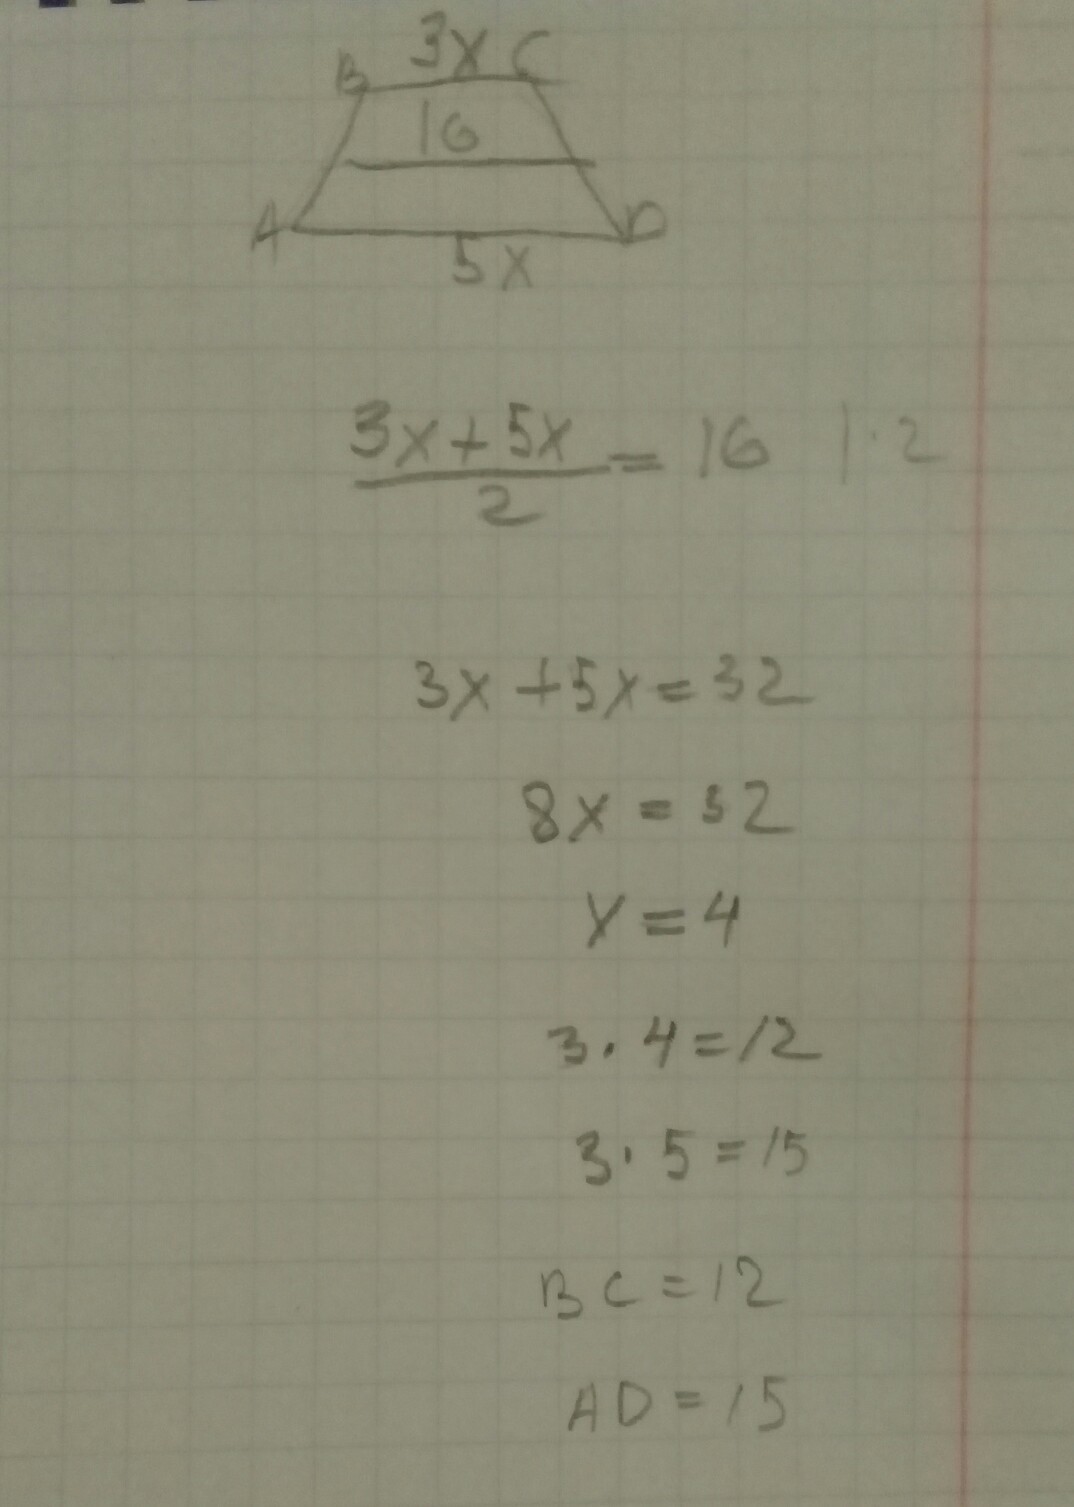 3x
B C
16
A D
5x
3x+5x/2 = 16 |·2
3x+5x=32
8x=32
x=4
3·4=12
3·5=15
BC=12
AD=15